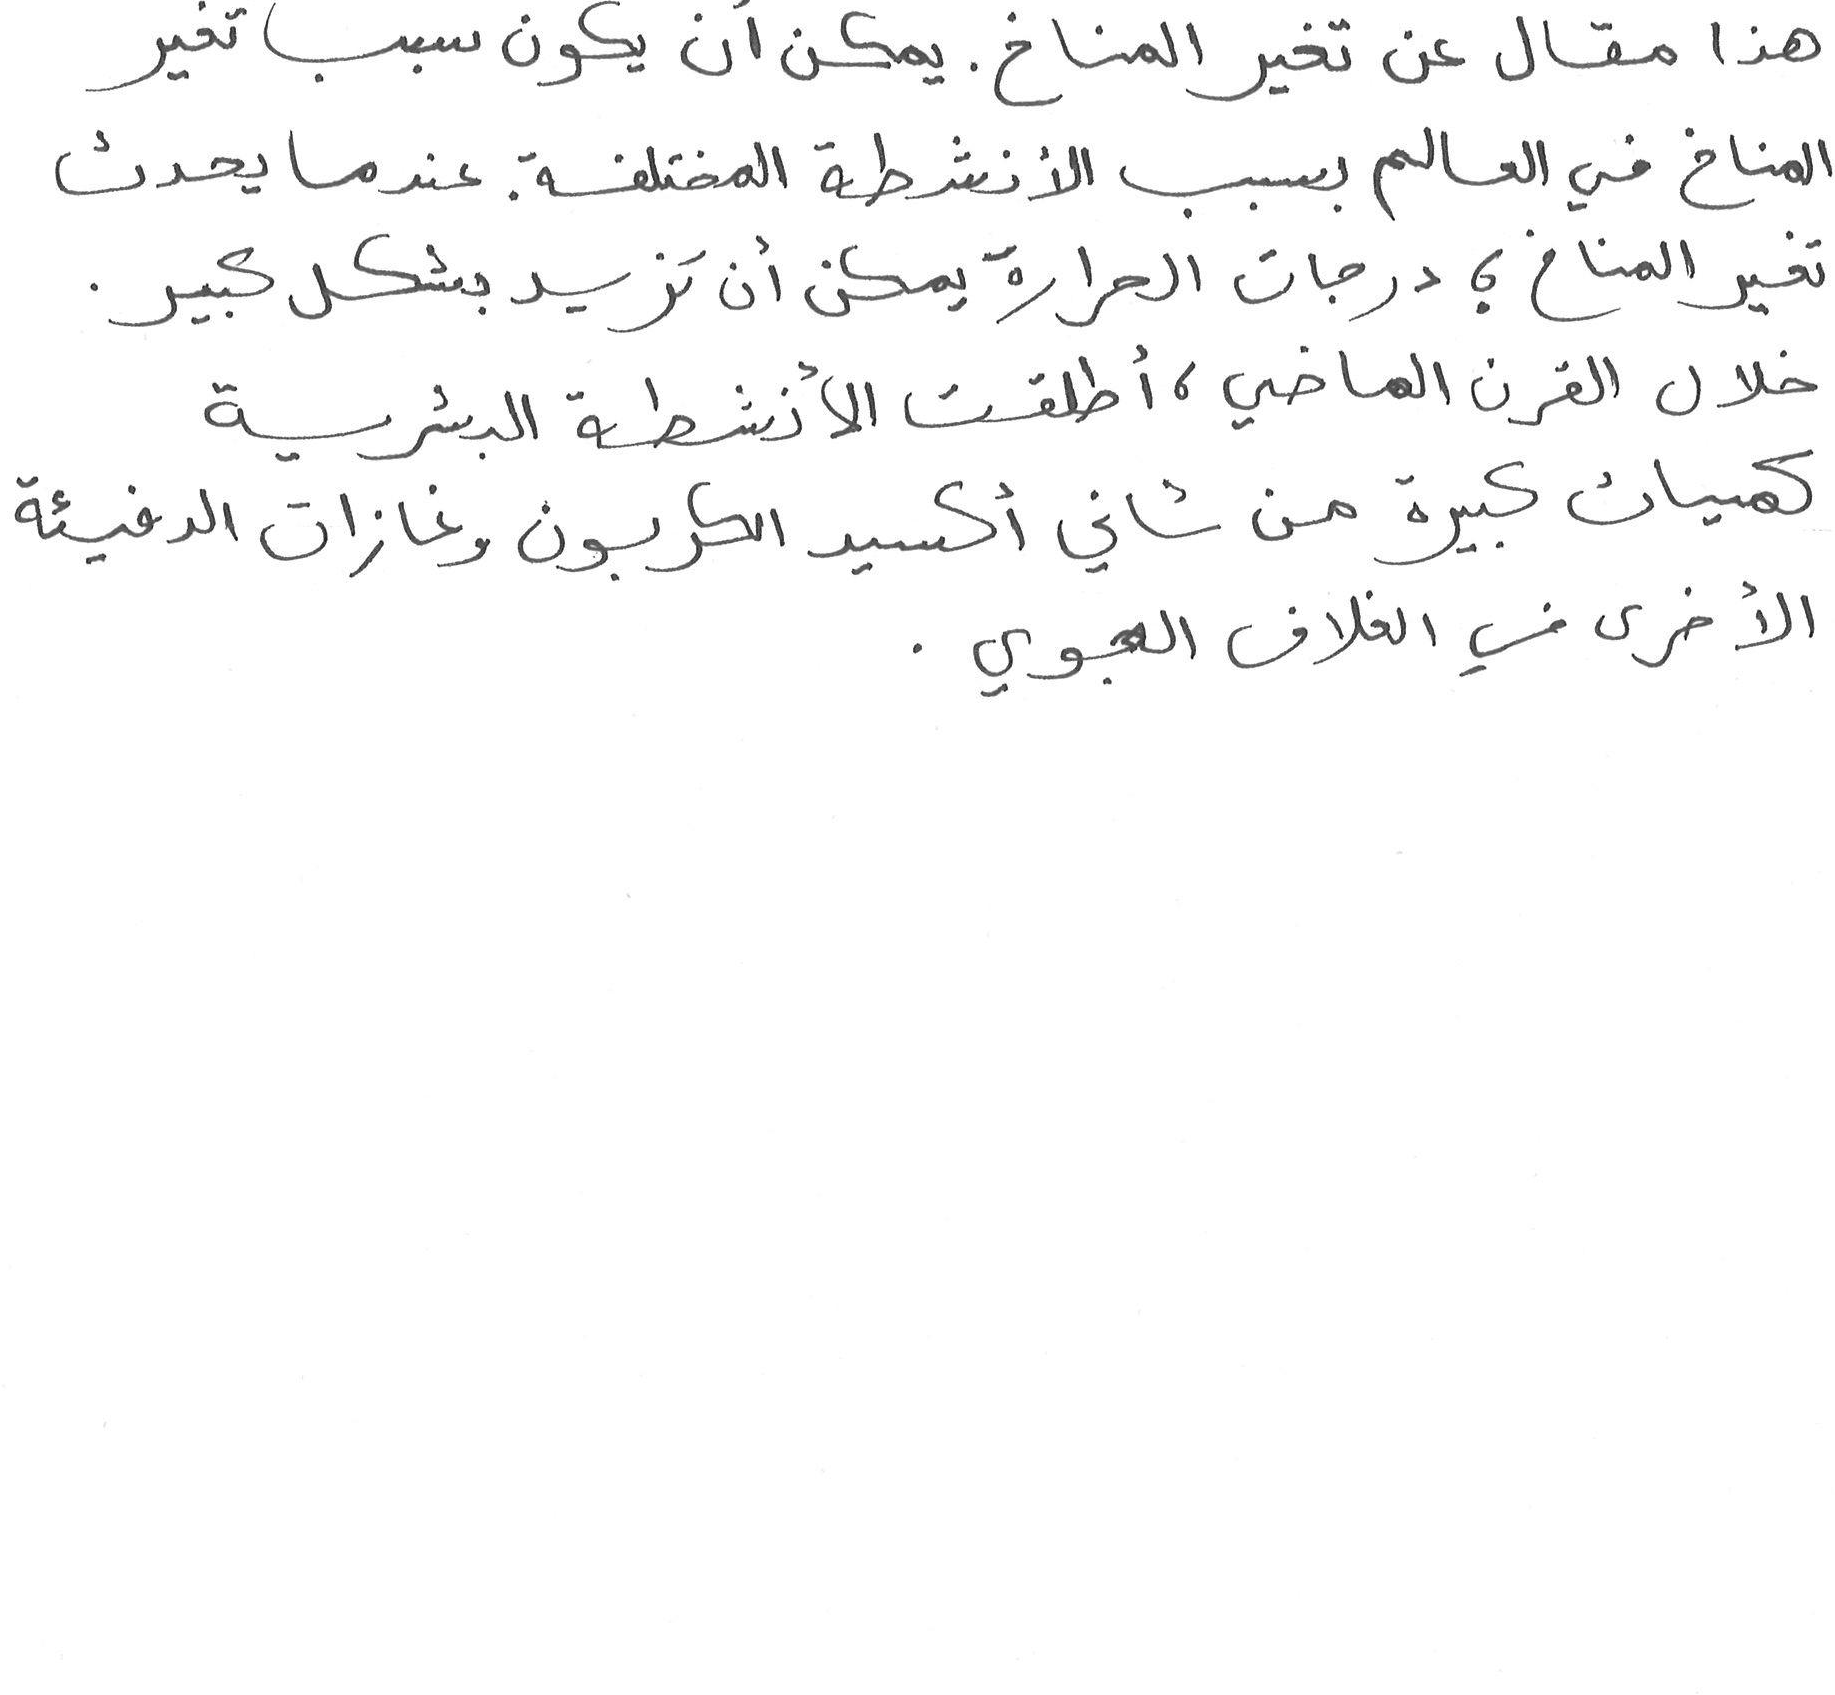 هذا مقال عن تغير المناخ. يمكن أن يكون سبب تغير
المناخ في العالم بسبب الأنشطة المختلفة. عندما يحدث
تغير المناخ، درجات الحرارة يمكن أن تزيد بشكل كبير.
خلال القرن الماضي، أطلقت الأنشطة البشرية
كميات كبيرة من ثاني أكسيد الكربون وغازات الدفيئة
الأخرى في الغلاف الجوي.